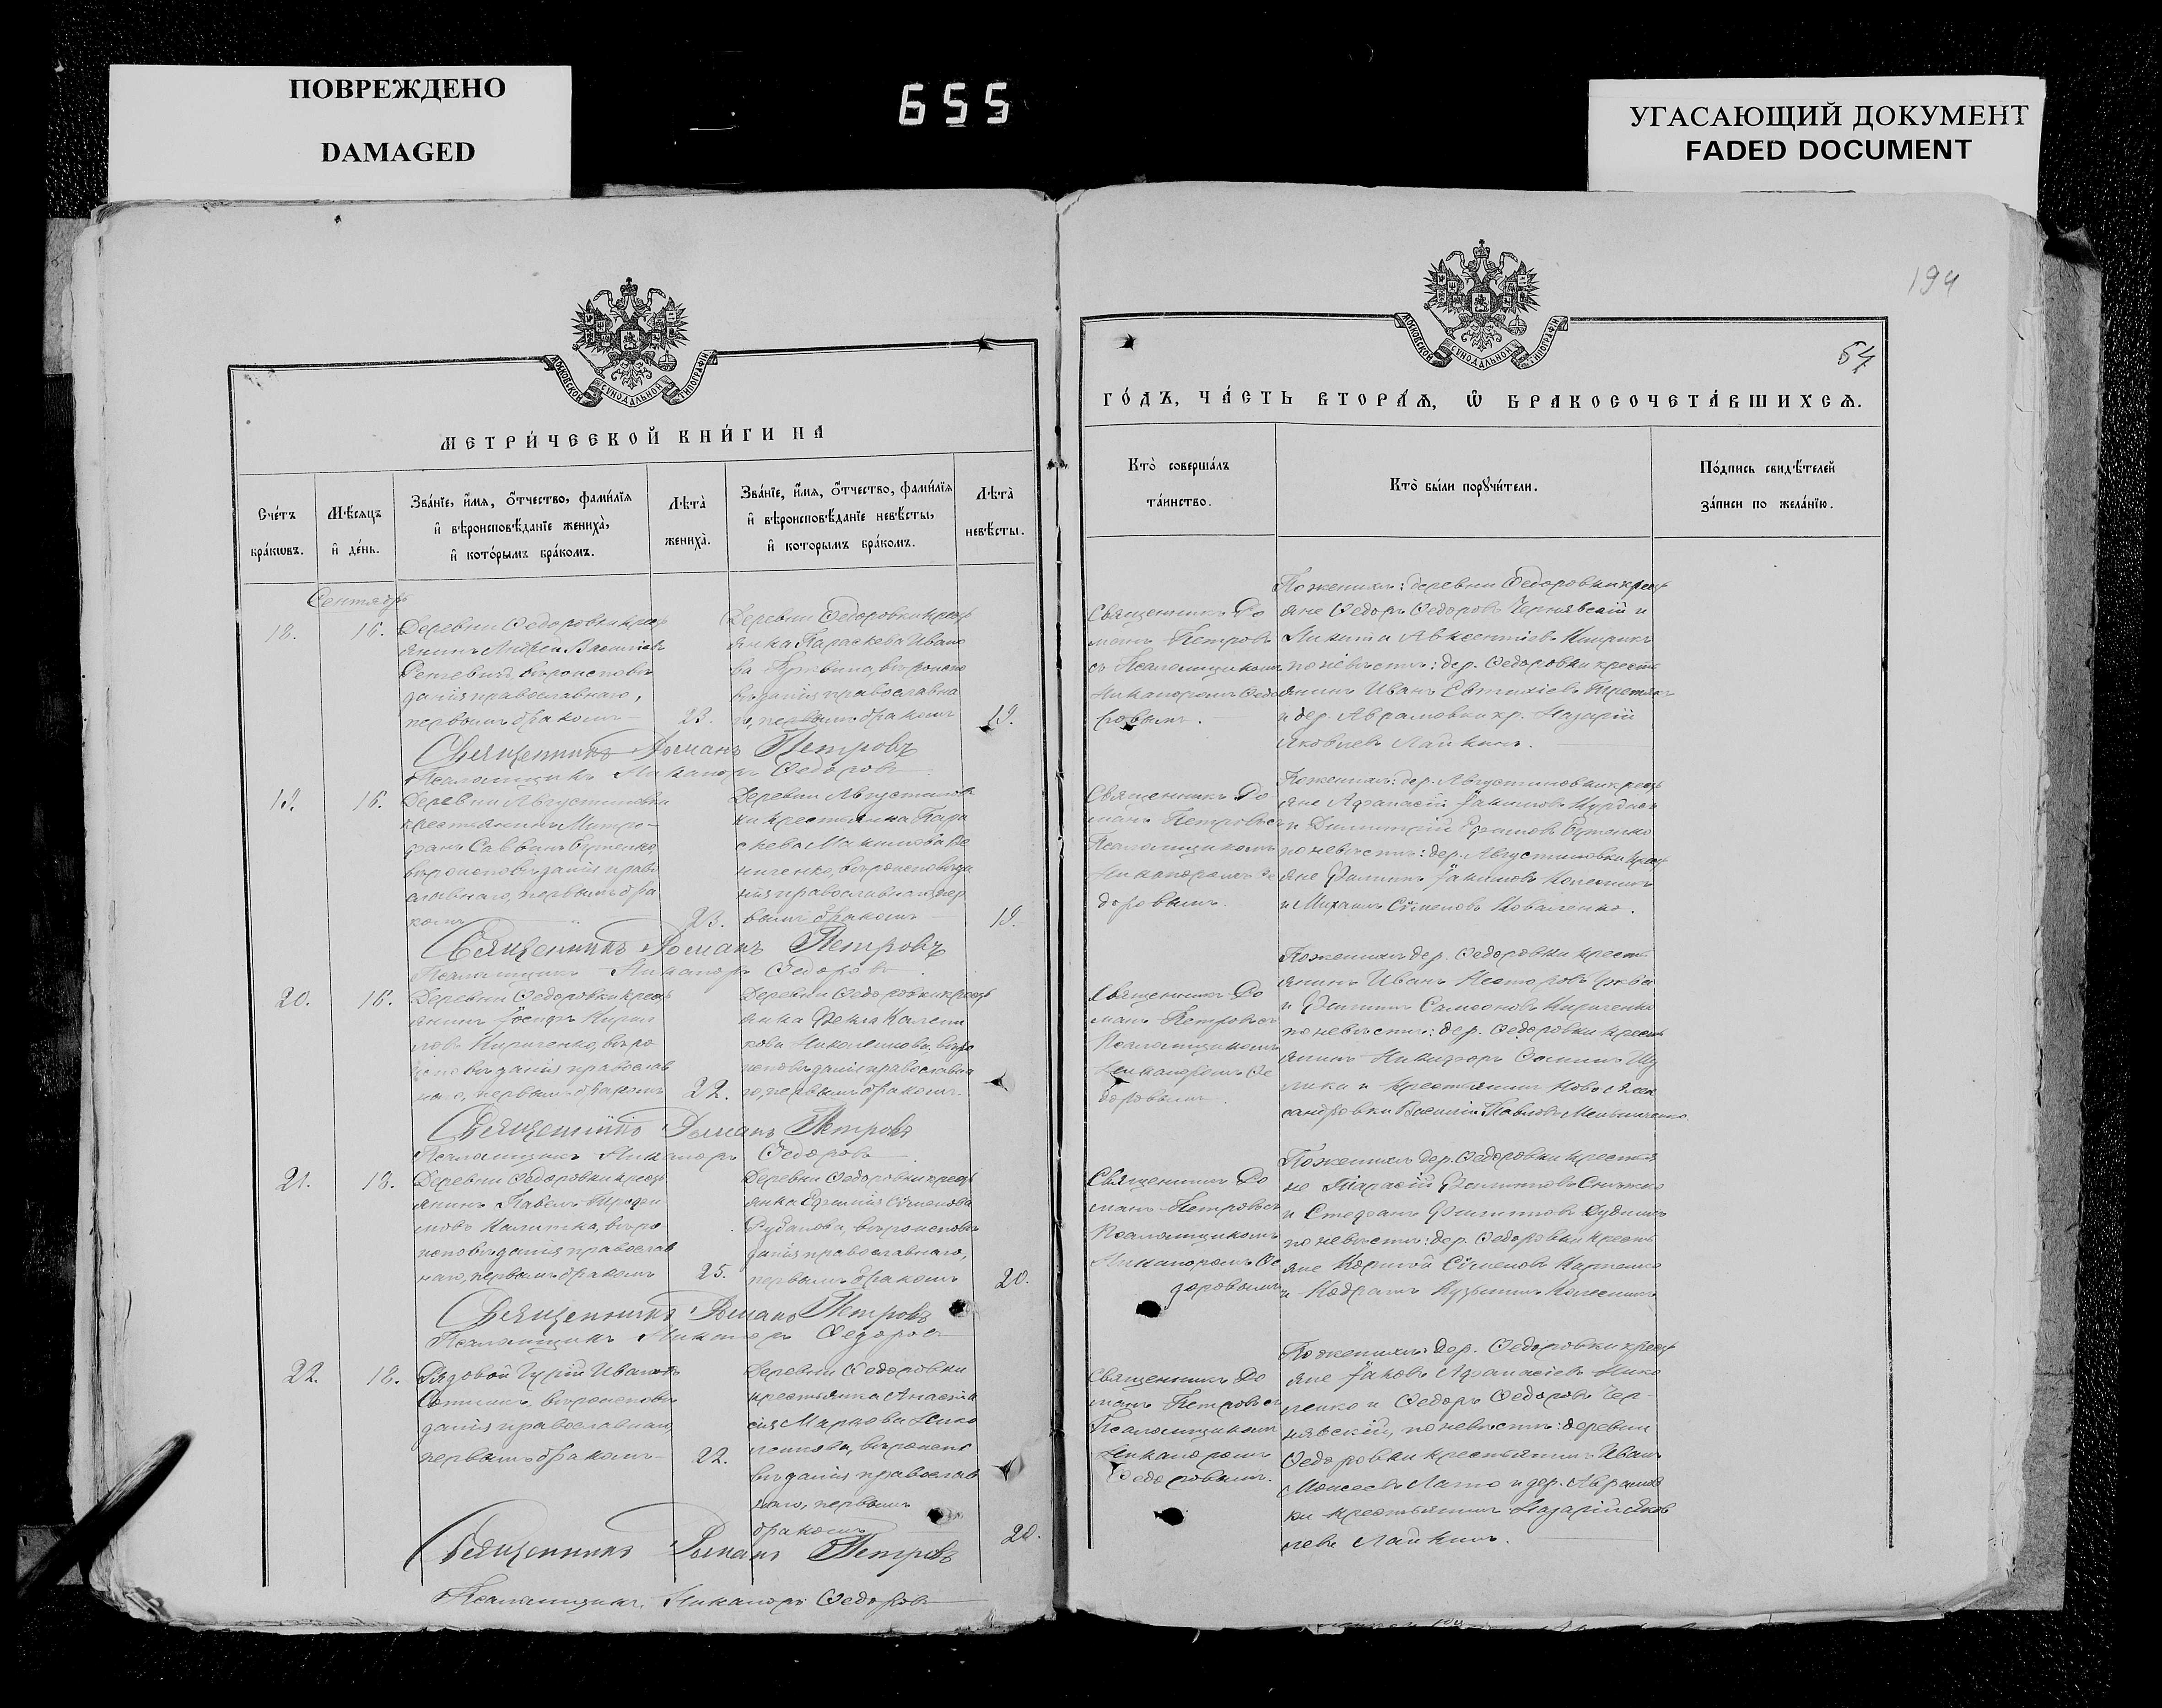 ПОВРЕЖДЕНО
DAMAGED
655
УГАСАЮЩИЙ ДОКУМЕНТ
FADED DOCUMENT
194
МОСКОВСКОЙ СУНОДАЛЬНОЙ ТИПОГРАФІИ
МЕТРИ́ЧЕСКОЙ КНИ́ГИ НА
Сче́тъ бра́кѡвъ.
Мѣ́сяцъ и҆ де́нь.
Зва́нїе, и҆́мя, ѻ҆́тчество, фами́лїя
и҆ вѣроисповѣ́данїе жениха̀,
и҆ кото́рымъ бра́комъ.
Лѣта̀ жениха̀.
Зва́нїе, и҆́мя, ѻ҆́тчество, фами́лїя
и҆ вѣроисповѣ́данїе невѣ́сты,
и҆ которымъ бра́комъ.
Лѣта̀ невѣ́сты.
Сентябрь
18.
16.
Деревни Ѳедоровки крест
янинъ Андрей Василіевъ
вѣроисповѣ
данія православнаго,
первымъ бракомъ
23.
Деревни Ѳедоровки крест
янка Параскева Ивано
ва вѣроиспо
вѣданія православна
го, первымъ бракомъ
19.
Священникъ Романъ Петровъ
Псаломщикъ Никаноръ Ѳедоровъ
19.
16.
Деревни Августиновки
крестьянинъ Митро-
фанъ Саввинъ Бутенко,
вѣроисповѣданія право
славнаго, первымъ бра
комъ
23.
Деревни Августинов
ки крестьянка Пара
скева Макимова
ниченко, вѣроисповѣда
нія православнаго, пер
вымъ бракомъ
19.
Священникъ Романъ Петровъ
Псаломщикъ Никаноръ Ѳедоровъ
20.
16.
Деревни Ѳедоровки крест
янинъ Іосифъ Кирил
ловъ Кириченко, вѣро
исповѣданія православ
наго, первымъ бракомъ
22.
Деревни Ѳедоровки крест
янка Ѳекла Каленни
кова Николенкова, вѣро
исповѣданія православна
го, первымъ бракомъ.
Священникъ Романъ Петровъ
Псаломщикъ Никаноръ Ѳедоровъ
21.
18.
Деревни Ѳедоровки крест
янинъ Павелъ Трофи
мовъ Калитка, вѣро
исповѣданія православ
наго, первымъ бракомъ
25.
Деревни Ѳедоровки крест
янка Евфимія Сѵменова
Рубанова, вѣроисповѣ
данія православнаго,
первымъ бракомъ
20.
Священникъ Романъ Петровъ
Псаломщикъ Никаноръ Ѳедоровъ
22.
18.
Рядовой Гурій Ивановъ
вѣроисповѣ
данія православнаго,
первымъ бракомъ
22.
Деревни Ѳедоровки
крестьянка Анаста
сія Маркова Нико
ленкова, вѣроиспо
вѣданія православ
наго, первымъ
бракомъ
20.
Священникъ Романъ Петровъ
Псаломщикъ Никаноръ Ѳедоровъ
МОСКОВСКОЙ СУНОДАЛЬНОЙ ТИПОГРАФІИ
54
ГО́ДЪ, ЧА́СТЬ ВТОРА́Я, Ѡ҆ БРАКОСОЧЕТА́ВШИХСЯ.
Кто̀ соверша́лъ
та́инство.
Кто̀ бы́ли порꙋчи́тели.
По́дпись свидѣ́телей
за́писи по жела́нїю.
Священникъ Ро
манъ Петровъ
съ Псаломщикомъ
Никаноромъ Ѳедо
ровымъ.
По женихѣ: деревни Ѳедоровки крест
яне Ѳедоръ Ѳедоровъ Чернявскій и
Никита Авксентіевъ
по невѣстѣ: дер. Ѳедоровки кресть
янинъ Иванъ Евтихіевъ Третякъ
и дер. Аврамовки кр. Назарій
Яковлевъ Лапкинъ.
Священникъ Ро
манъ Петровъ съ
Псаломщикомъ
Никаноромъ Ѳе
доровымъ.
По женихѣ: дер. Августиновки крест
яне Аѳанасій Іакимовъ
и Димитрій Бутенко
по невѣстѣ: дер. Августиновки крест
яне Филиппъ Іакимовъ
и Михаилъ Сѵменовъ Коваленко.
Священникъ Ро
манъ Петровъ съ
Псаломщикомъ
Никаноромъ Ѳе
доровымъ.
По женихѣ дер. Ѳедоровки кресть
янинъ Иванъ Несторовъ
и Филиппъ Самсоновъ Кириченко
по невѣстѣ: дер. Ѳедоровки кресть
янинъ Никифоръ
и крестьянинъ Ново Алек
сандровки Василій Павловъ Мельниченко.
Священникъ Ро
манъ Петровъ съ
Псаломщикомъ
Никаноромъ Ѳе
доровымъ
По женихѣ дер. Ѳедоровки крестья
не Тарасій Филипповъ
и Стефанъ Филипповъ
по невѣстѣ: дер. Ѳедоровки кресть
яне Сѵменовъ
и Кодратъ Кузьминъ
Священникъ Ро
манъ Петровъ съ
Псаломщикомъ
Никаноромъ
Ѳедоровымъ.
По женихѣ: дер. Ѳедоровки крест
яне Іаковъ Аѳанасіевъ Нико
ленко и Ѳедоръ Ѳедоровъ Чер-
нявскій, по невѣстѣ: деревни
Ѳедоровки крестьянинъ Иванъ
Моисеевъ и дер. Аврамов
ки крестьянинъ Назарій Яков
левъ Лапкинъ.